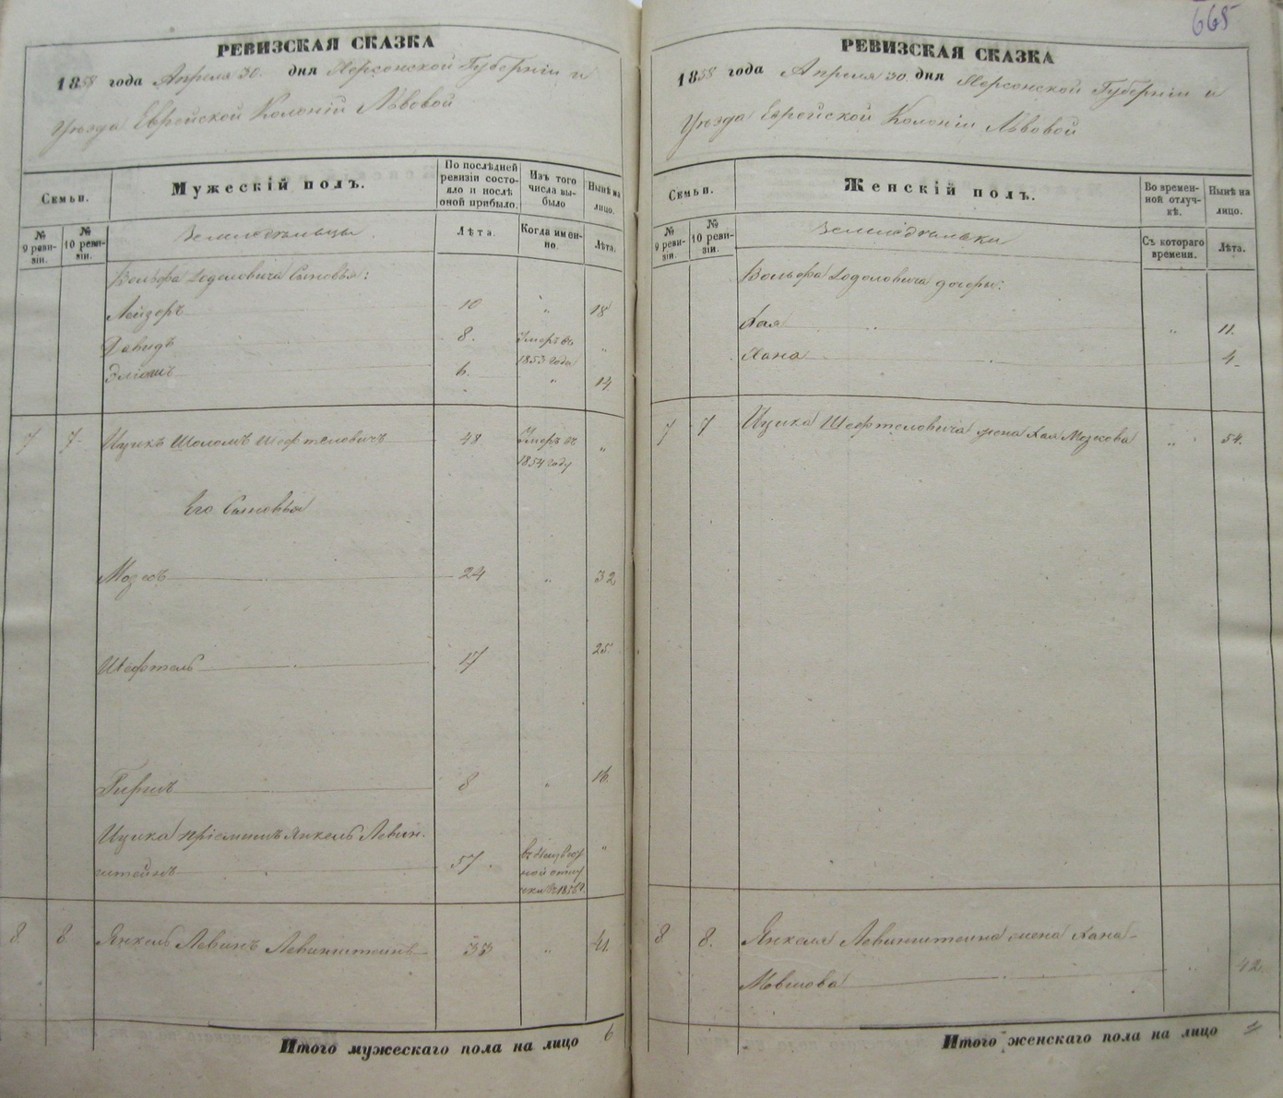 665
РЕВИЗСКАЯ СКАЗКА
1858 года Апреля 30. дня Херсонской Губерніи и
Уезда Еврейской Колоніи Львовой
Семьи.
Мужескій полъ.
По послѣдней ревизіи состояло и послѣ оной прибыло.
Изъ того числа выбыло
Нынѣ на лицо.
№ 9 ревизіи.
№ 10 ревизіи.
Земледѣльцы
Лѣта.
Когда именно.
Лѣта.
Вольфа Сыновья:
Лейзоръ 10 „ 18
Давидъ 8. Умеръ въ 1853 года „
6. „ 14
7 7. Ицикъ Шоломъ Шефтеловичъ 48 Умеръ въ 1854 году „
Его Сыновья
24 „ 32
Шефтель 17 25.
Гиршъ 8 „ 16.
Ицика пріемышъ Янкель Левин-
штейнъ 57. „
8 8. Янкель Левинъ Левинштейнъ 33 „ 41.
Итого мужескаго пола на лицо 6
РЕВИЗСКАЯ СКАЗКА
1858 года Апреля 30. дня Херсонской Губерніи и
Уезда Еврейской Колоніи Львовой
Семьи.
Женскій полъ.
Во временной отлучкѣ.
Нынѣ на лицо.
№ 9 ревизіи.
№ 10 ревизіи.
Земледѣльки
Съ котораго времени.
Лѣта.
Вольфа дочери:
Хая „ 11.
Хана 4.
7 7 Ицика Шефтеловича жена Хая Мозкова „ 54.
8 8. Янкеля Левинштейна жена Хана
Мовшова „ 42.
Итого женскаго пола на лицо 4